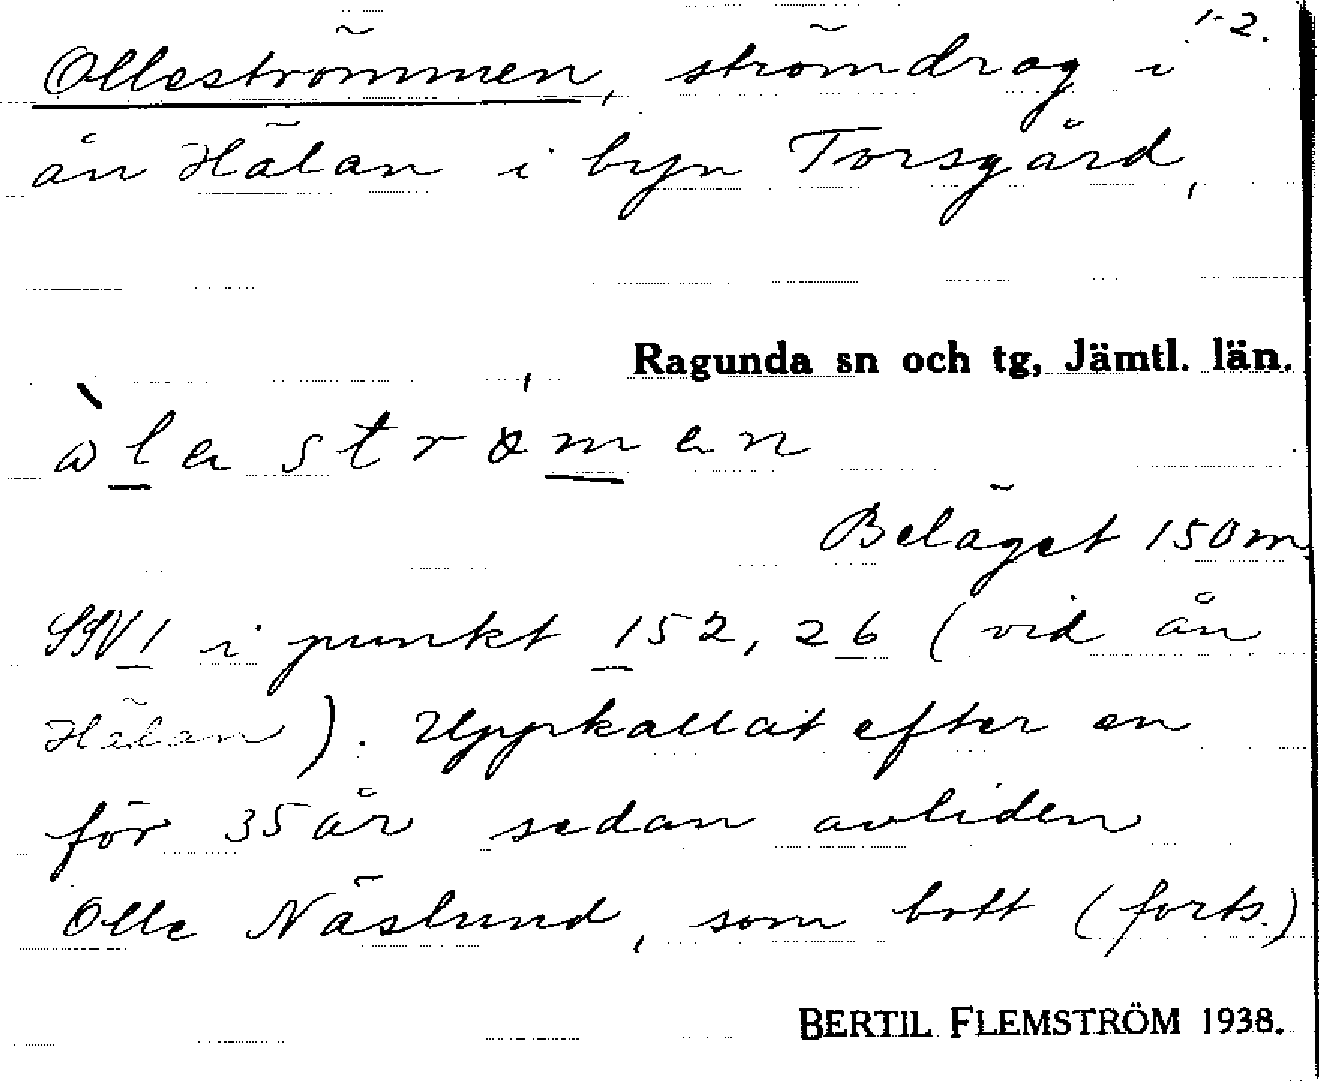 1-2.
Olleströmmen, strömdrag i
ån Hälan i byn Torsgård,
Ragunda sn och tg, Jämtl. län.
Beläget 150m
SSV1 i punkt 152,26 (vid ån
Hälan). Uppkallat efter en
för 35 år sedan avliden
Olle Näslund, som bott (forts.)
BERTIL FLEMSTRÖM 1938.